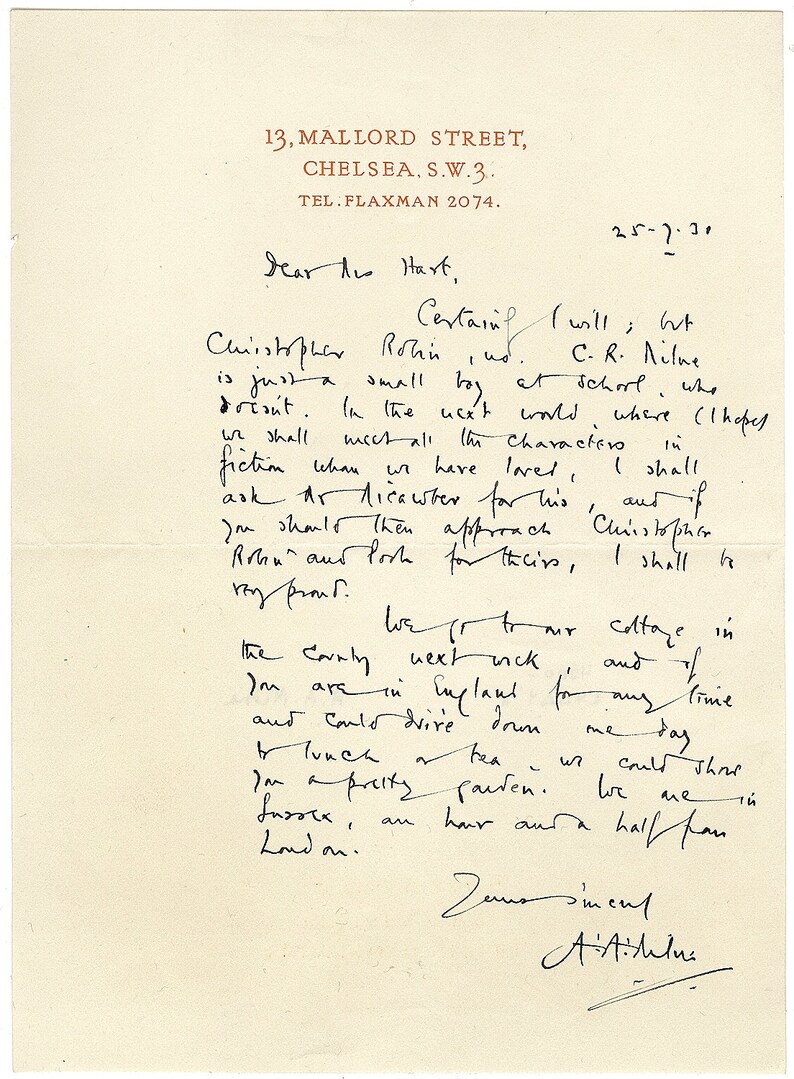 13, MALLORD STREET,
CHELSEA, S.W.3.
TEL. FLAXMAN 2074.
25-7-30
Dear Mrs Hart,
Certainly I will ; but
Christopher Robin , no. C. R. Milne
is just a small boy at school, who
doesn't. In the next world, where (I hope)
we shall meet all the characters in
fiction whom we have loved, I shall
ask Mr Micawber for his, and if
you should then approach Christopher
Robin and Pooh for theirs, I shall be
very proud.
We go to our cottage in
the country next week, and if
you are in England for any time
and could drive down one day
to lunch or tea, we could show
you a pretty garden. We are in
Sussex, an hour and a half from
London.
Yours sincerely
A. A. Milne